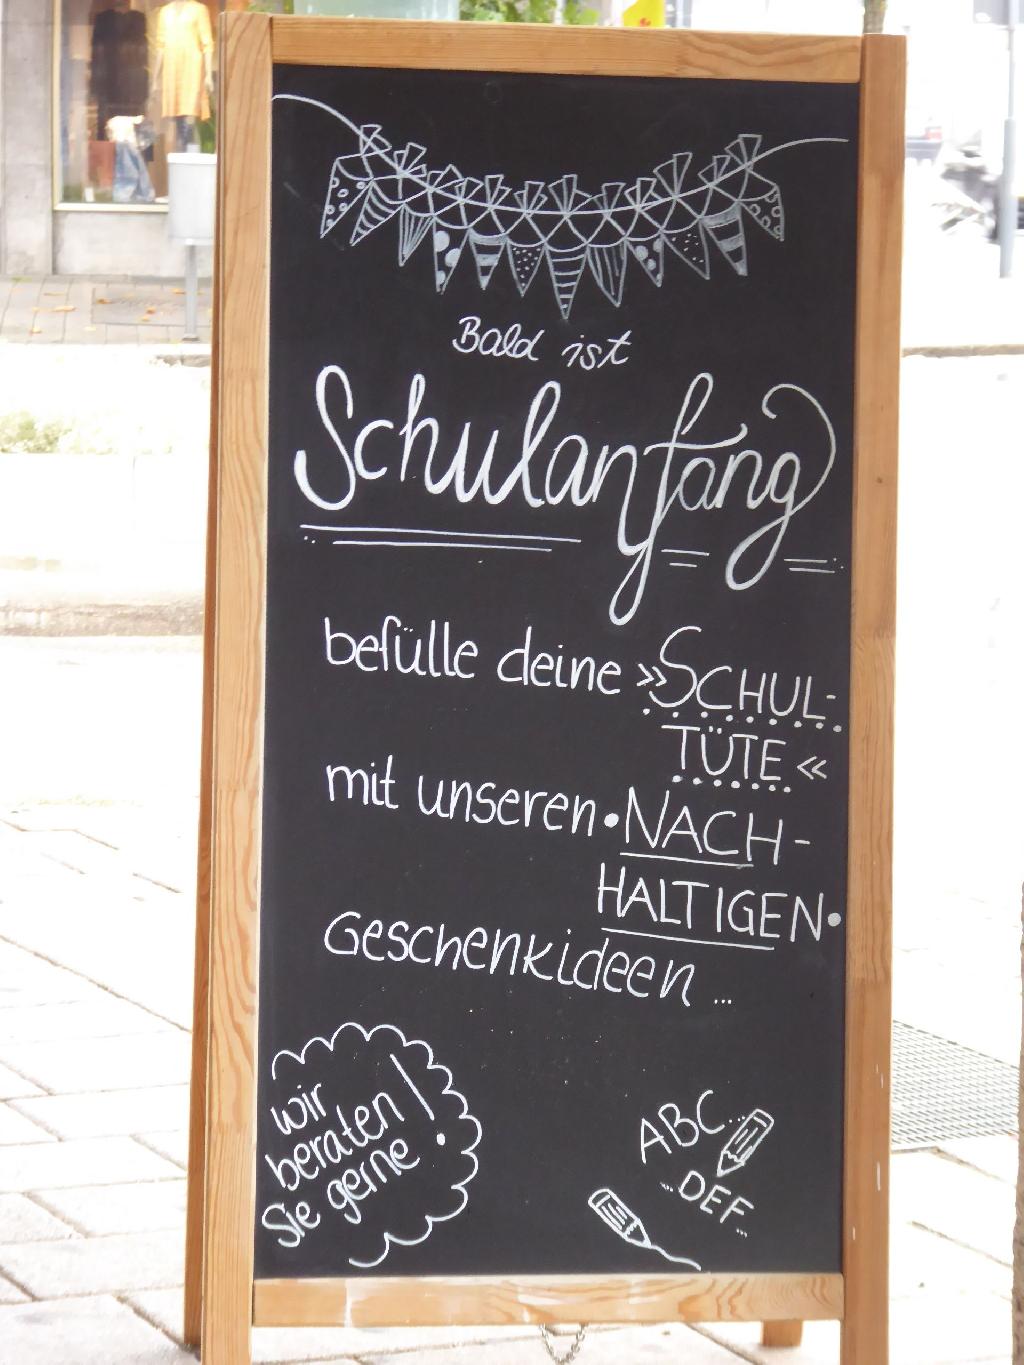 Bald ist
Schulanfang
befülle deine »SCHUL-
TÜTE«
mit unseren •NACH-
HALTIGEN•
GESCHENKIDEEN ...
wir
beraten
Sie gerne!
ABC...
...DEF...